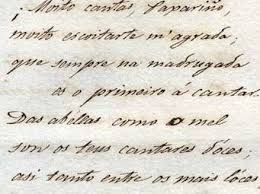 ¡Moito cantas, Paparíño,
moito escoitarte m'agrada,
que sempre na madrugada
es o primeiro á cantar.
Das abellas como o mel
son os teus cantares dóces,
asi tanto entre os mais lóces